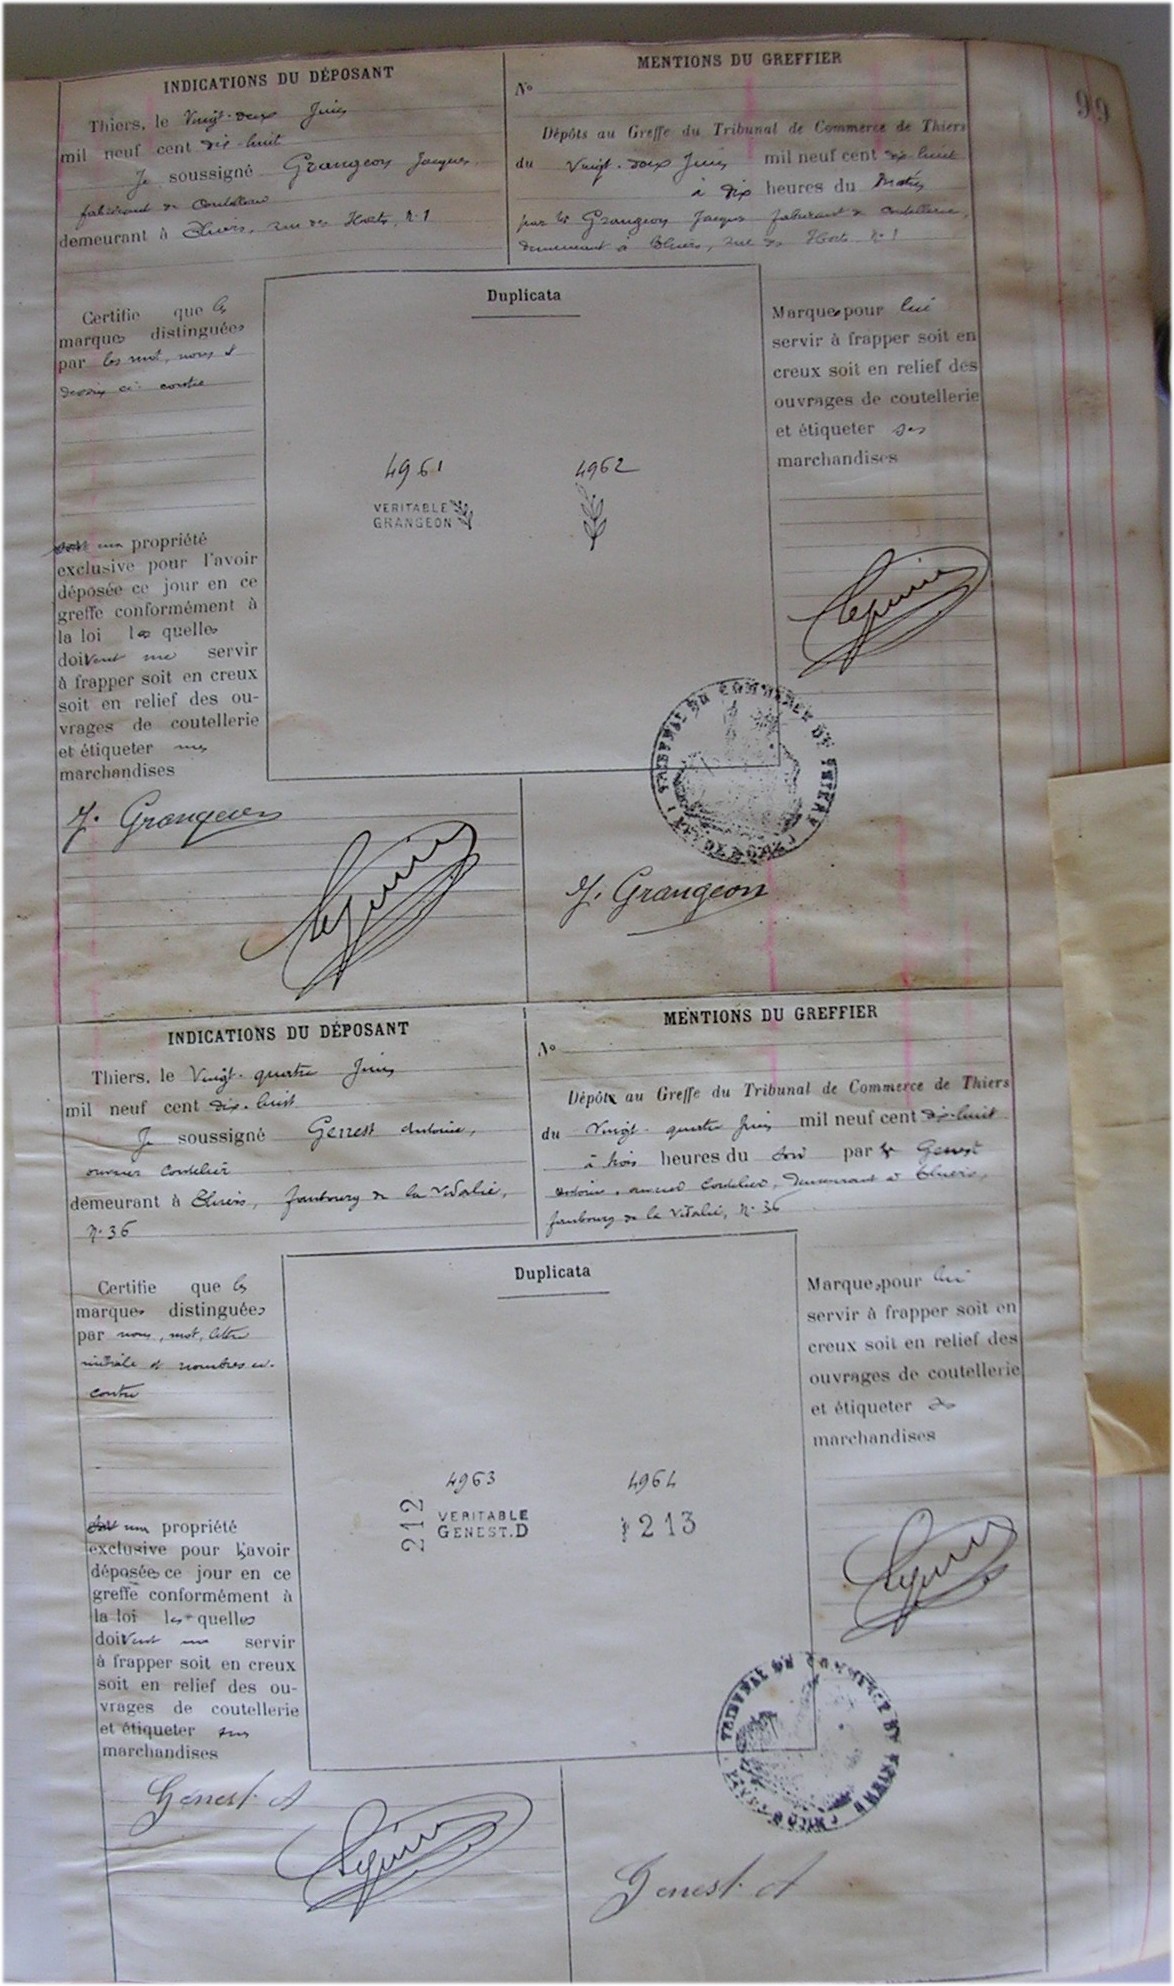 99
INDICATIONS DU DÉPOSANT
Thiers, le Vingt-deux Juin
mil neuf cent dix-huit
Je soussigné Grangeon Jacques,
fabricant de Coutellerie
demeurant à Thiers, rue des Horts, N. 1
MENTIONS DU GREFFIER
N°
Dépôts au Greffe du Tribunal de Commerce de Thiers
du Vingt-deux Juin mil neuf cent dix-huit
à dix heures du Matin
par Mr Grangeon Jacques fabricant de coutellerie,
demeurant à Thiers, rue des Horts N. 1
Certifie que les
marques distinguées
par les mot, noms et
dessin ci-contre
propriété
exclusive pour l'avoir
déposée ce jour en ce
greffe conformément à
la loi les quelles
doivent me servir
à frapper soit en creux
soit en relief des ou-
vrages de coutellerie
et étiqueter mes
marchandises
Duplicata
4961
VERITABLE
GRANGEON
4962
Marques pour lui
servir à frapper soit en
creux soit en relief des
ouvrages de coutellerie
et étiqueter ses
marchandises
TRIBUNAL DU COMMERCE DE THIERS
J. Grangeon
J. Grangeon
INDICATIONS DU DÉPOSANT
Thiers, le Vingt-quatre Juin
mil neuf cent dix-huit
Je soussigné Genest Antoine,
ouvrier coutelier
demeurant à Thiers, faubourg de la Vidalie,
N. 36
MENTIONS DU GREFFIER
N°
Dépôts au Greffe du Tribunal de Commerce de Thiers
du Vingt-quatre Juin mil neuf cent dix-huit
à trois heures du soir par Mr Genest
Antoine, ouvrier coutelier, demeurant à Thiers,
faubourg de la Vidalie, N. 36
Certifie que les
marques distinguées
par noms, mot, lettre
initiale et nombres ci-
contre
propriété
exclusive pour l'avoir
déposées ce jour en ce
greffe conformément à
la loi les quelles
doivent me servir
à frapper soit en creux
soit en relief des ou-
vrages de coutellerie
et étiqueter mes
marchandises
Duplicata
4963
212
VERITABLE
GENEST.D
4964
213
Marques pour lui
servir à frapper soit en
creux soit en relief des
ouvrages de coutellerie
et étiqueter ses
marchandises
TRIBUNAL DU COMMERCE DE THIERS
Genest A
Genest A